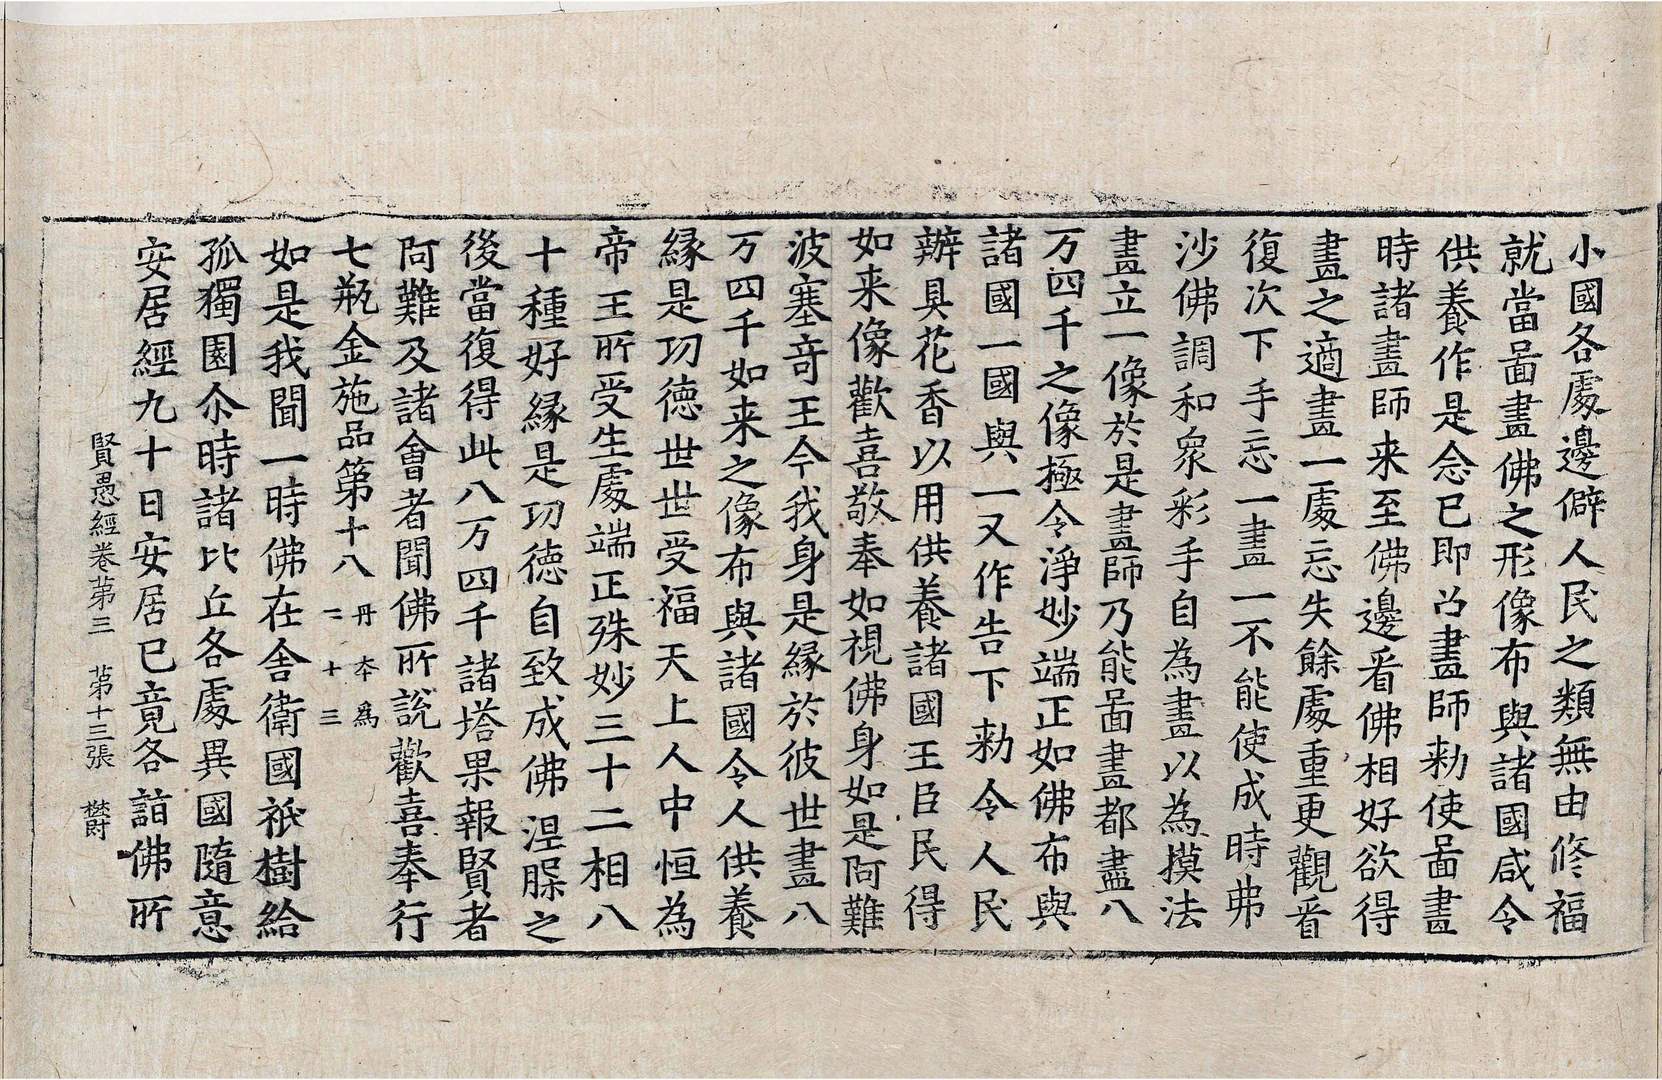 小國各處邊僻人民之類無由修福
就當畵畫佛之形像布與諸國咸令
供養作是念已即召畫師勑使畵畫
時諸畫師来至佛邊看佛相好欲得
畫之適畫一處忘失餘處重更觀看
復次下手忘一畫一不能使成時弗
沙佛調和衆彩手自為畫以為摸法
畫立一像於是畫師乃能畵畫都盡八
万四千之像極令淨妙端正如佛布與
諸國一國與一又作告下勑令人民
辦具花香以用供養諸國王臣民得
如来像歡喜敬奉如視佛身如是阿難
波塞竒王今我身是緣於彼世畫八
万四千如来之像布與諸國令人供養
緣是功德世世受福天上人中恒為
帝王所受生處端正殊妙三十二相八
十種好緣是功德自致成佛涅槃之
後當復得此八万四千諸塔果報賢者
阿難及諸會者聞佛所說歡喜奉行
七瓶金施品第十八 丹本為二十三
如是我聞一時佛在舍衛國祇樹給
孤獨園尒時諸比丘各處異國隨意
安居經九十日安居已竟各詣佛所
賢愚經卷第三 第十三張 欝